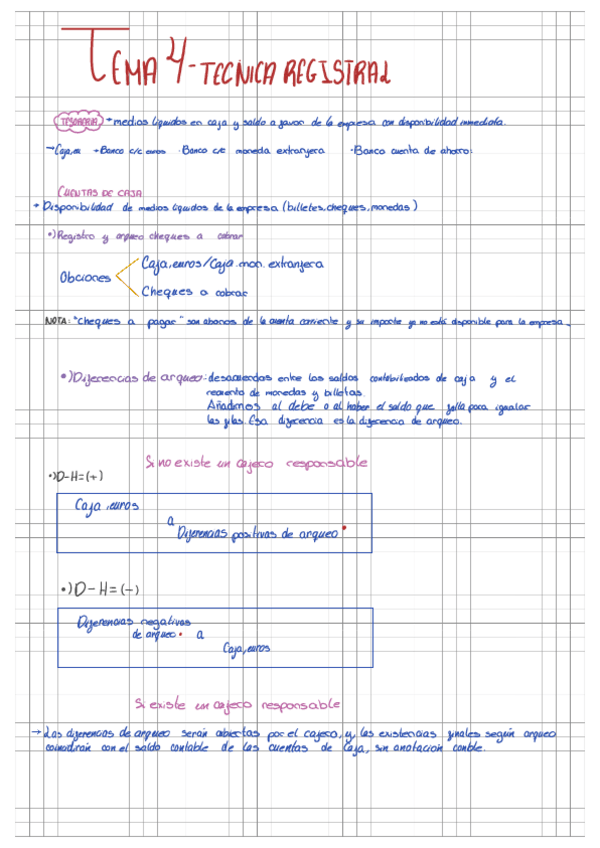 TEMA 4 - TECNICA REGISTRAL
TESORERIA → medios líquidos en caja y saldo a favor de la empresa con disponibilidad inmediata.
→ Caja,€ → Banco c/c euros · Banco c/c moneda extranjera · Banco cuenta de ahorro:
CUENTAS DE CAJA
→ Disponibilidad de medios líquidos de la empresa (billetes, cheques, monedas)
•) Registro y arqueo cheques a cobrar
Caja, euros / Caja mon. extranjera
Obciones
Cheques a cobrar
NOTA: "Cheques a pagar" son abonos de la cuenta corriente y su importe ya no está disponible para la empresa.
•) Diferencias de arqueo: desacuerdos entre los saldos contabilizados de caja y el
recuento de monedas y billetes.
Añadimos al debe o al haber el saldo que falta para igualar
las filas. Esa diferencia es la diferencia de arqueo.
Si no existe un cajero responsable
•) D-H=(+)
Caja, euros
a
Diferencias positivas de arqueo
•) D-H=(-)
Diferencias negativas
de arqueo a
Caja, euros
Si existe un cajero responsable
→ Las diferencias de arqueo serán abiertas por el cajero, y las existencias finales según arqueo
coincidirán con el saldo contable de las cuentas de Caja, sin anotación conble.